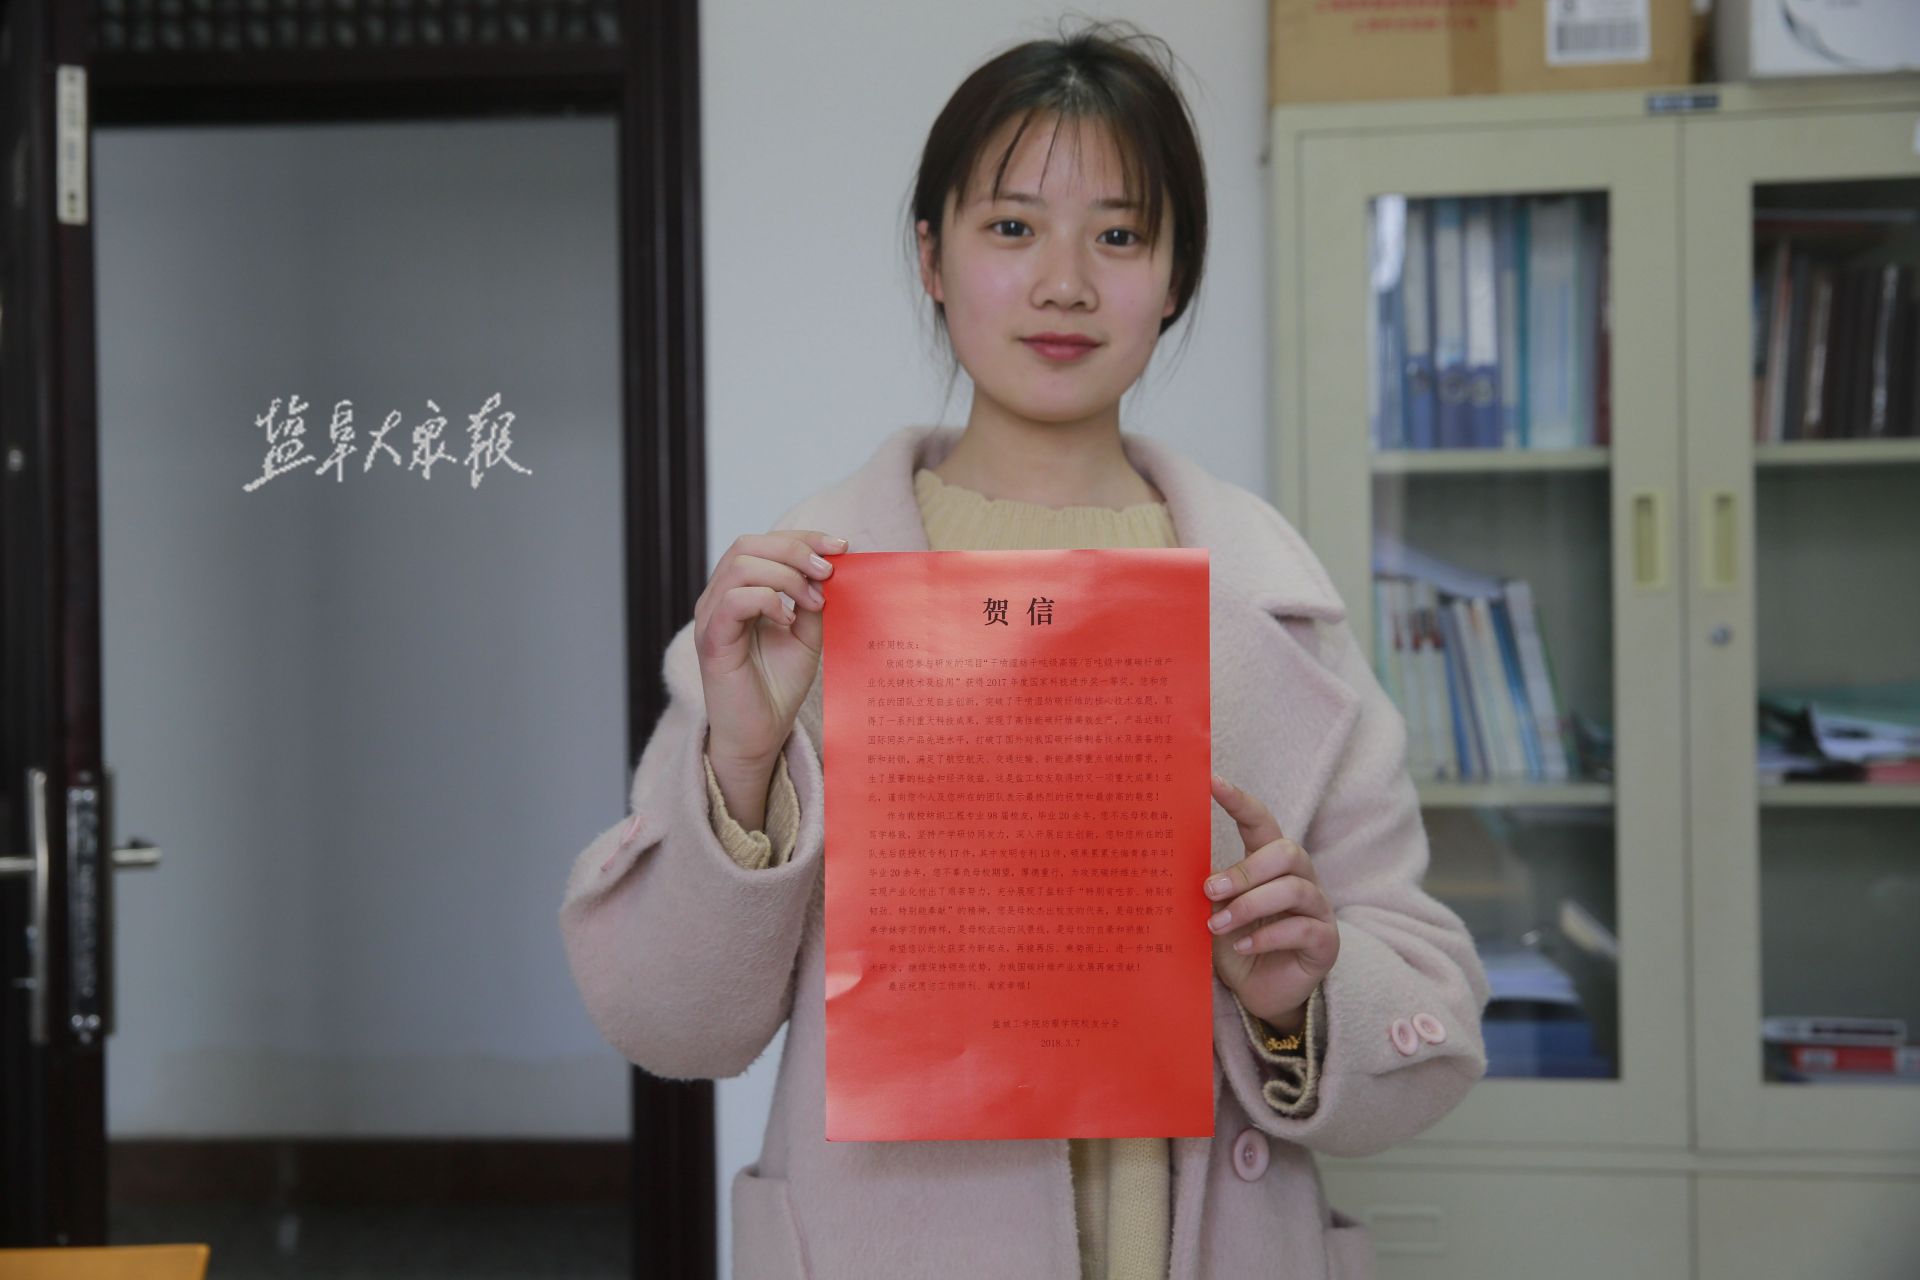 盐阜大众报
贺 信
裴怀周校友：
欣闻您参与研发的项目“干喷湿纺千吨级高强/百吨级中模碳纤维产
业化关键技术及应用”获得2017年度国家科技进步奖一等奖。您和您
所在的团队立足自主创新，突破了干喷湿纺碳纤维的核心技术难题，取
得了一系列重大科技成果，实现了高性能碳纤维高效生产，产品达到了
国际同类产品先进水平，打破了国外对我国碳纤维制备技术及装备的垄
断和封锁，满足了航空航天、交通运输、新能源等重点领域的需求，产
生了显著的社会和经济效益。这是盐工校友取得的又一项重大成果！在
此，谨向您个人及您所在的团队表示最热烈的祝贺和最崇高的敬意！
作为我校纺织工程专业98届校友，毕业20余年，您不忘母校教诲，
笃学格致，坚持产学研协同发力，深入开展自主创新，您和您所在的团
队先后获授权专利17件，其中发明专利13件，硕果累累无悔青春年华！
毕业20余年，您不辜负母校期望，厚德重行，为攻克碳纤维生产技术，
实现产业化付出了艰苦努力，充分展现了盐粒子“特别肯吃苦、特别有
韧劲、特别能奉献”的精神，您是母校杰出校友的代表，是母校数万学
弟学妹学习的榜样，是母校流动的风景线，是母校的自豪和骄傲！
希望您以此次获奖为新起点，再接再厉、乘势而上，进一步加强技
术研发，继续保持领先优势，为我国碳纤维产业发展再做贡献！
最后祝愿您工作顺利、阖家幸福！
盐城工学院纺服学院校友分会
2018.3.7